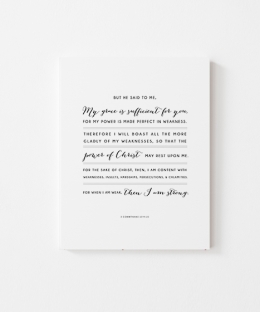 BUT HE SAID TO ME,
My grace is sufficient for you,
FOR MY POWER IS MADE PERFECT IN WEAKNESS.
THEREFORE I WILL BOAST ALL THE MORE
GLADLY OF MY WEAKNESSES, SO THAT THE
power of Christ MAY REST UPON ME.
FOR THE SAKE OF CHRIST, THEN, I AM CONTENT WITH
WEAKNESSES, INSULTS, HARDSHIPS, PERSECUTIONS, & CALAMITIES.
FOR WHEN I AM WEAK, then I am strong.